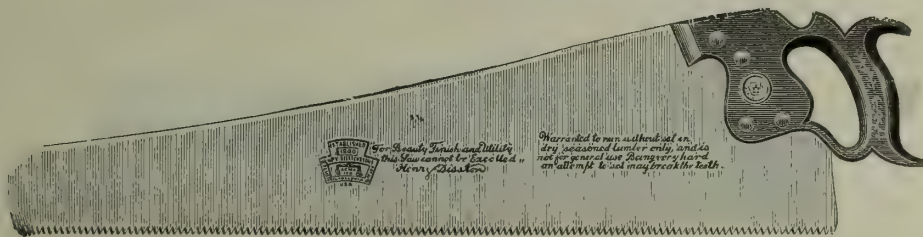 ESTABLISHED
1840
U.S.A.
"For Beauty, Finish and Utility
this Saw cannot be Excelled"
Henry Disston
Warranted to run without set in
dry seasoned lumber only, and is
not for general use Being very hard
an attempt to set may break the teeth.